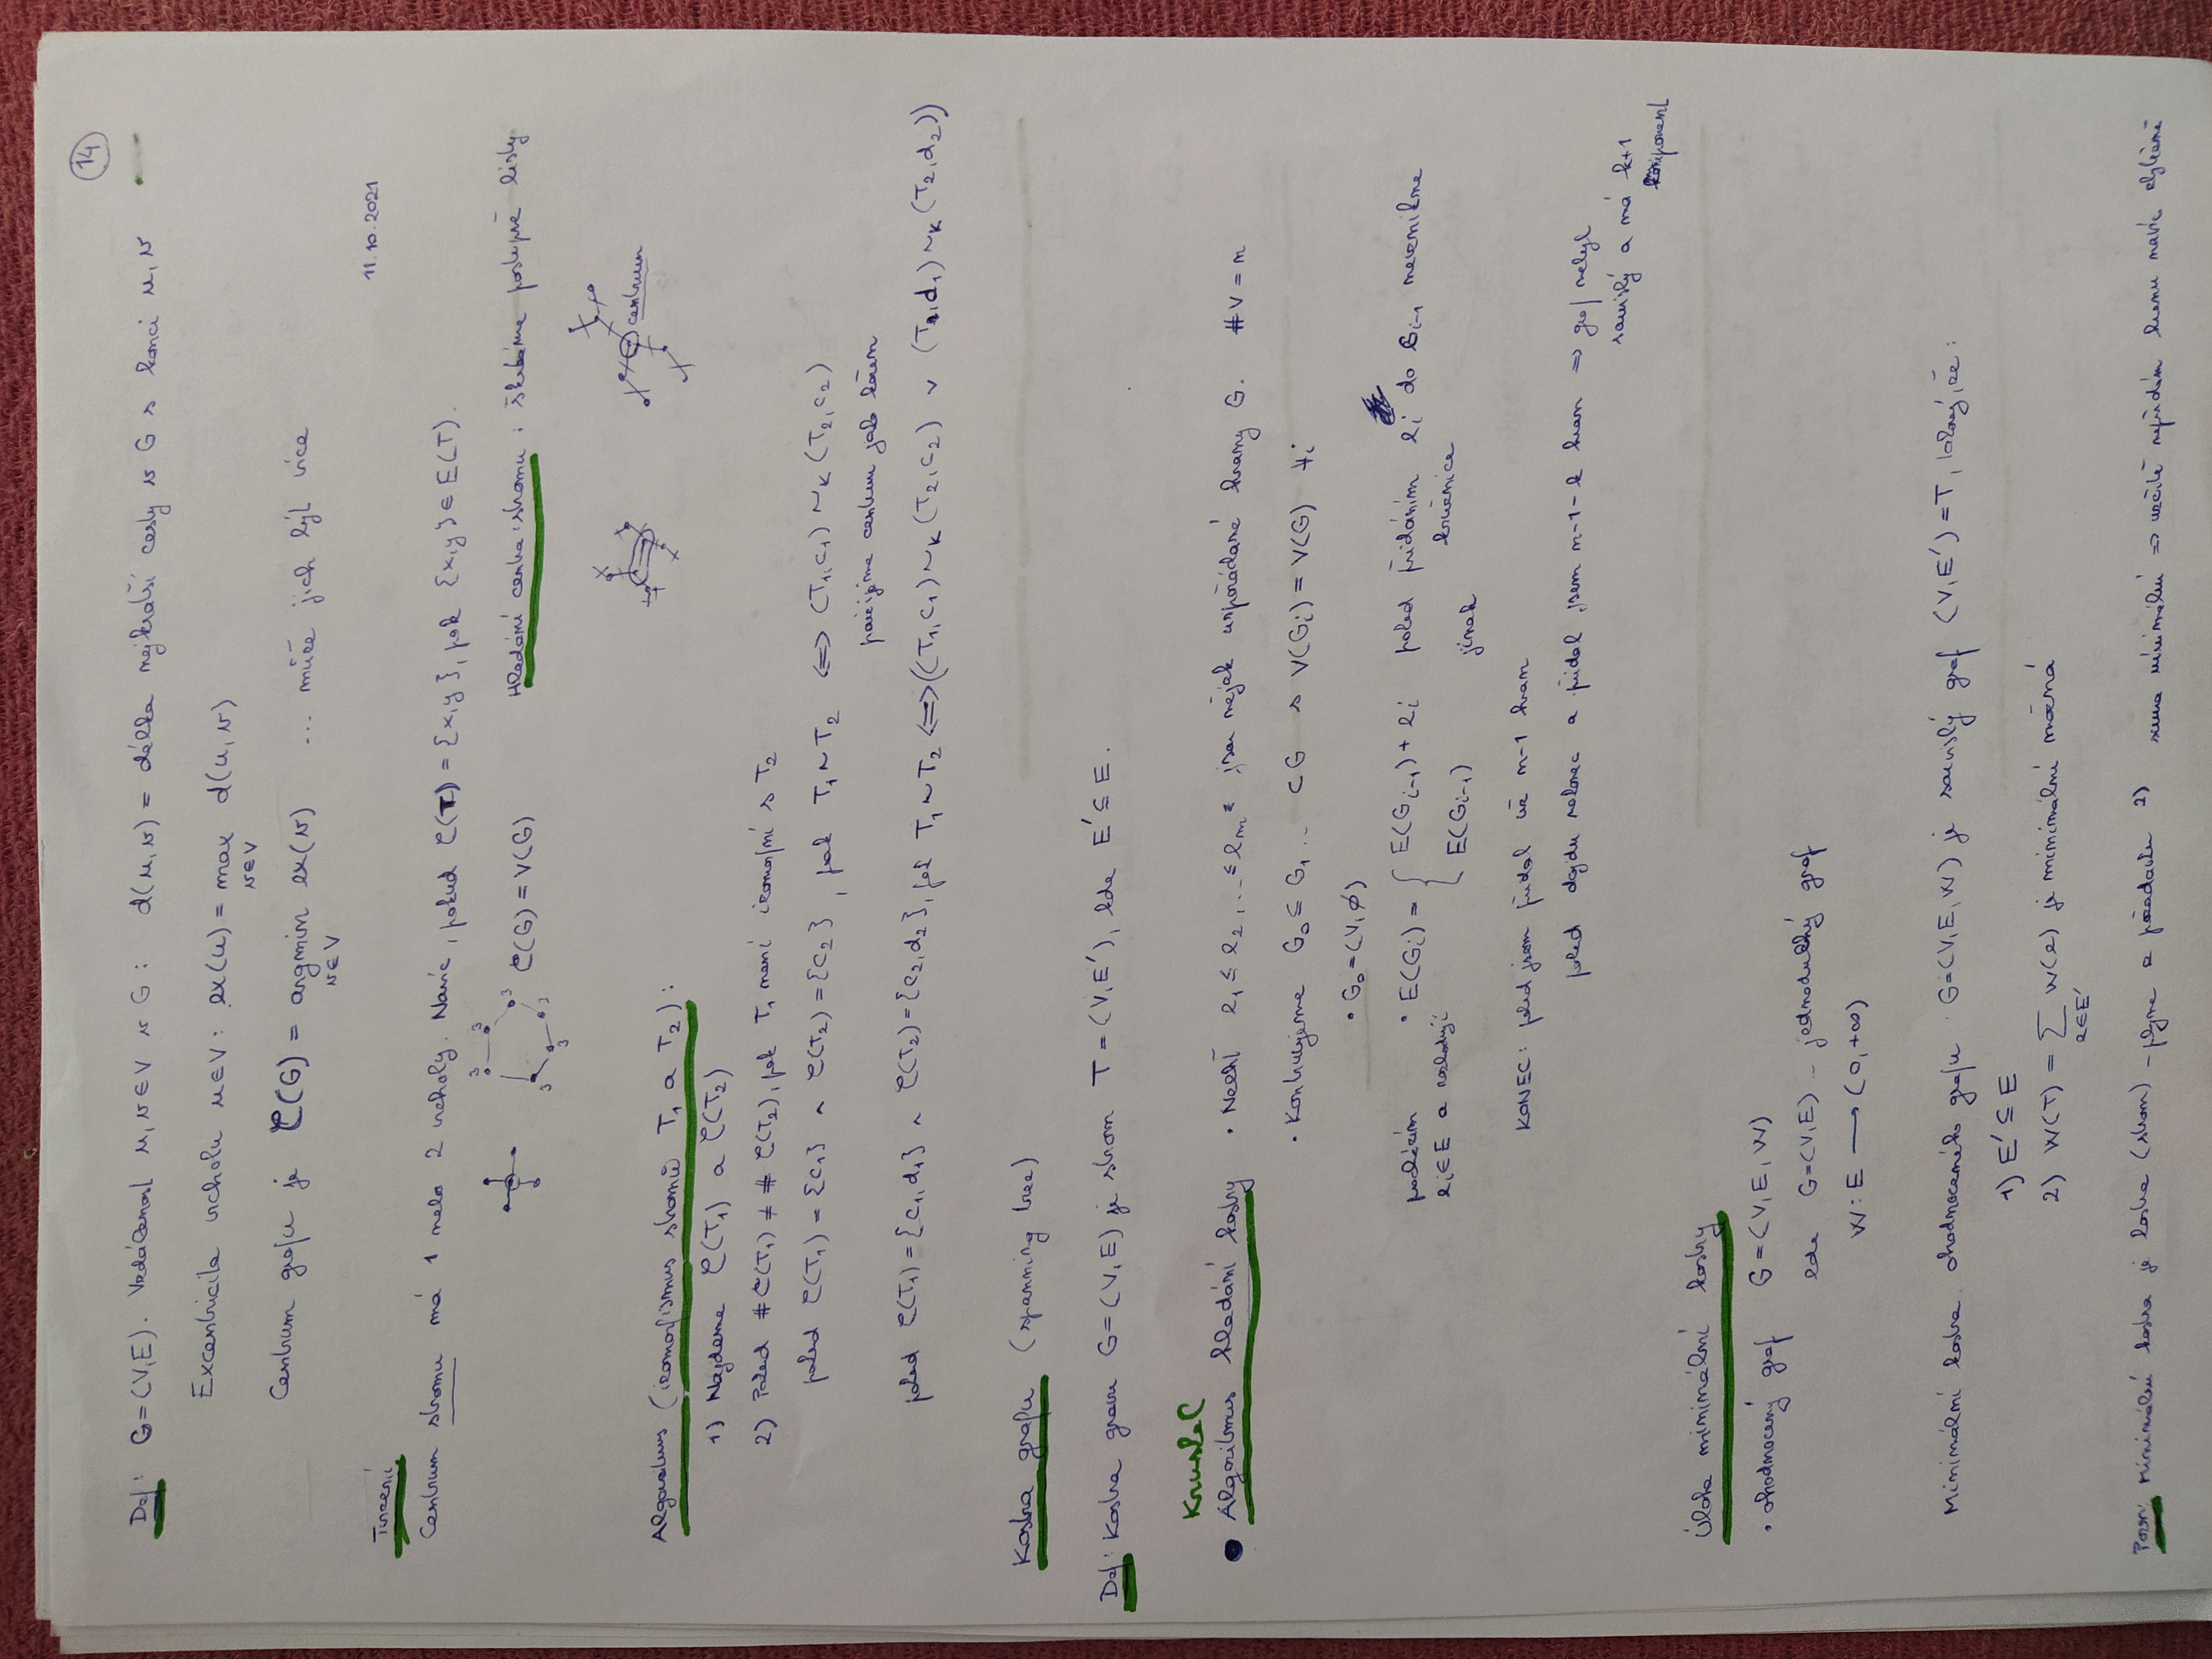 14
Def: G=(V,E). Vzdálenost u,v∈V v G: d(u,v) = délka nejkratší cesty v G s konci u,v
Excentricita vrcholu u∈V: ex(u) = max d(u,v)
v∈V
Centrum grafu je C(G) = argmin ex(v) ... může jich být více
v∈V
11.10.2021
Tvrzení
Centrum stromu má 1 nebo 2 vrcholy. Navíc, pokud C(T) = {x,y}, pak {x,y}∈E(T).
C(G) = V(G)
3 3 3 3 3 3
Hledání centra stromu: škrtáme postupně listy
centrum
Algoritmus (izomorfismus stromů T₁ a T₂):
1) Najdeme C(T₁) a C(T₂)
2) Pokud #C(T₁) ≠ #C(T₂), pak T₁ není izomorfní s T₂
pokud C(T₁) = {c₁} ∧ C(T₂) = {c₂}, pak T₁~T₂ ⟺ (T₁,c₁) ~ₖ (T₂,c₂)
prvním centrum jak kořen
pokud C(T₁) = {c₁,d₁} ∧ C(T₂) = {c₂,d₂}, pak T₁~T₂ ⟺ ((T₁,c₁) ~ₖ (T₂,c₂) ∨ (T₁,d₁) ~ₖ (T₂,d₂))
Kostra grafu (spanning tree)
Def: Kostra grafu G=(V,E) je strom T=(V,E'), kde E'⊆E.
Kruskal
Algoritmus hledání kostry
• Nechť e₁ ≤ e₂, ... ≤ eₘ jsou nějak uspořádané hrany G. #V = n
• Konstruujeme G₀ ⊆ G₁ ... ⊂ G s V(Gᵢ) = V(G) ∀i
• G₀ = (V,∅)
• E(Gᵢ) = { E(Gᵢ₋₁) + eᵢ pokud přidáním eᵢ do Gᵢ₋₁ nevznikne
kružnice
E(Gᵢ₋₁) jinak
eᵢ∈E a
KONEC: pokud jsem přidal už n-1 hran
pokud dojdu nakonec a přidal jsem n-1-k hran ⟹ graf nebyl
souvislý a má k+1
komponent
Úloha minimální kostry
• ohodnocený graf G=(V,E,W)
kde G=(V,E) - jednoduchý graf
W: E ⟶ (0,+∞)
Minimální kostra ohodnoceného grafu G=(V,E,W) je souvislý graf (V,E')=T, takový, že:
1) E' ⊆ E
2) W(T) = ∑ W(e) je minimální možná
e∈E'
Pozn: Minimální kostra je kostra (strom) - plyne z požadavku 2) suma minimální ⟹ určitě nepřidám hranu navíc zbytečně